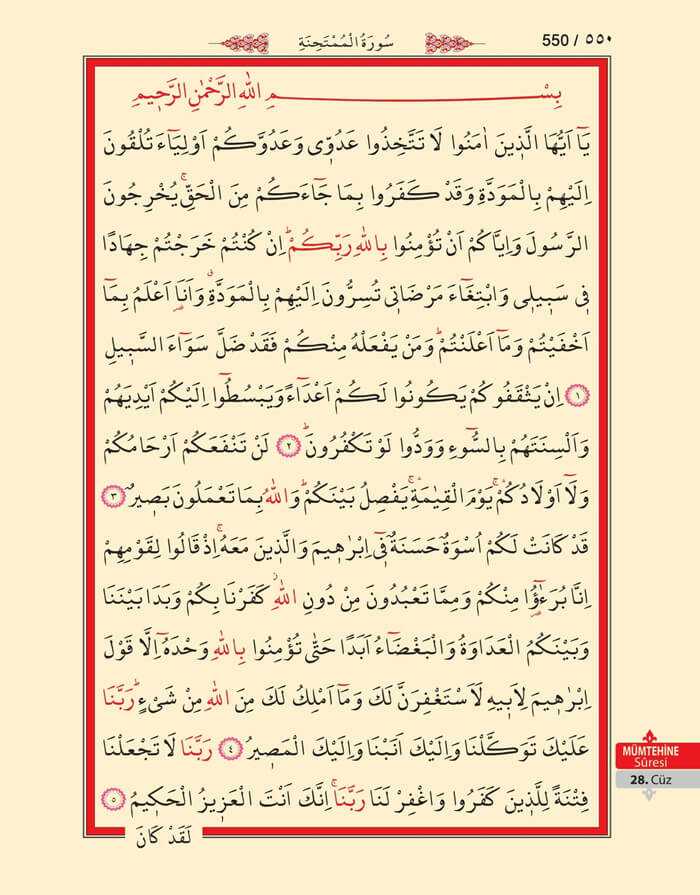 550 / ٥٥٠
سُورَةُ الْمُمْتَحِنَةِ
بِسْمِ اللّٰهِ الرَّحْمٰنِ الرَّحِيمِ
يَٓا اَيُّهَا الَّذِينَ اٰمَنُوا لَا تَتَّخِذُوا عَدُوِّى وَعَدُوَّكُمْ اَوْلِيَٓاءَ تُلْقُونَ
اِلَيْهِمْ بِالْمَوَدَّةِ وَقَدْ كَفَرُوا بِمَا جَٓاءَكُمْ مِنَ الْحَقِّۚ يُخْرِجُونَ
الرَّسُولَ وَاِيَّاكُمْ اَنْ تُؤْمِنُوا بِاللّٰهِ رَبِّكُمْۜ اِنْ كُنْتُمْ خَرَجْتُمْ جِهَادًا
فِى سَبِيلِى وَابْتِغَٓاءَ مَرْضَاتِى تُسِرُّونَ اِلَيْهِمْ بِالْمَوَدَّةِۗ وَاَنَا۬ اَعْلَمُ بِمَٓا
اَخْفَيْتُمْ وَمَٓا اَعْلَنْتُمْۜ وَمَنْ يَفْعَلْهُ مِنْكُمْ فَقَدْ ضَلَّ سَوَٓاءَ السَّبِيلِ
﴿١﴾ اِنْ يَثْقَفُوكُمْ يَكُونُوا لَكُمْ اَعْدَٓاءً وَيَبْسُطُٓوا اِلَيْكُمْ اَيْدِيَهُمْ
وَاَلْسِنَتَهُمْ بِالسُّٓوءِ وَوَدُّوا لَوْ تَكْفُرُونَۜ ﴿٢﴾ لَنْ تَنْفَعَكُمْ اَرْحَامُكُمْ
وَلَٓا اَوْلَادُكُمْۚ يَوْمَ الْقِيٰمَةِۚ يَفْصِلُ بَيْنَكُمْۜ وَاللّٰهُ بِمَا تَعْمَلُونَ بَصِيرٌ ﴿٣﴾
قَدْ كَانَتْ لَكُمْ اُسْوَةٌ حَسَنَةٌ فِٓى اِبْرٰهِيمَ وَالَّذِينَ مَعَهُۚ اِذْ قَالُوا لِقَوْمِهِمْ
اِنَّا بُرَءٰٓؤُ۬ا مِنْكُمْ وَمِمَّا تَعْبُدُونَ مِنْ دُونِ اللّٰهِۘ كَفَرْنَا بِكُمْ وَبَدَا بَيْنَنَا
وَبَيْنَكُمُ الْعَدَاوَةُ وَالْبَغْضَٓاءُ اَبَدًا حَتّٰى تُؤْمِنُوا بِاللّٰهِ وَحْدَهُٓ اِلَّا قَوْلَ
اِبْرٰهِيمَ لِاَبِيهِ لَاَسْتَغْفِرَنَّ لَكَ وَمَٓا اَمْلِكُ لَكَ مِنَ اللّٰهِ مِنْ شَىْءٍۜ رَبَّنَا
عَلَيْكَ تَوَكَّلْنَا وَاِلَيْكَ اَنَبْنَا وَاِلَيْكَ الْمَصِيرُ ﴿٤﴾ رَبَّنَا لَا تَجْعَلْنَا
فِتْنَةً لِلَّذِينَ كَفَرُوا وَاغْفِرْ لَنَا رَبَّنَاۚ اِنَّكَ اَنْتَ الْعَزِيزُ الْحَكِيمُ ﴿٥﴾
لَقَدْ كَانَ
MÜMTEHİNE
Sûresi
28. Cüz